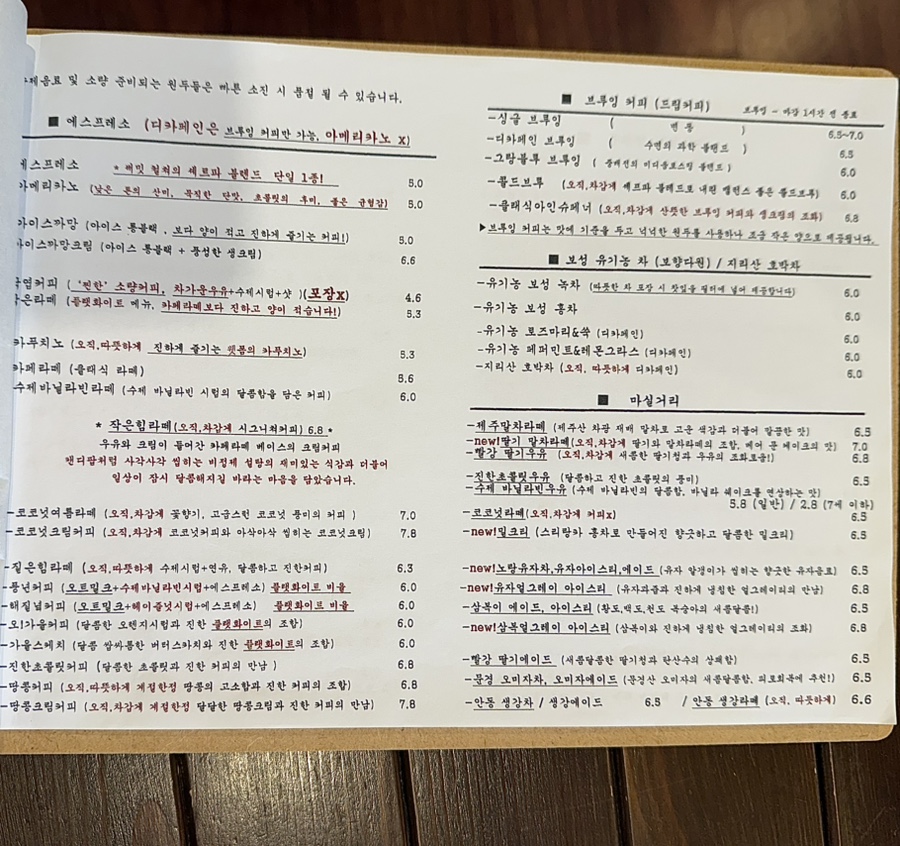 제음료 및 소량 준비되는 원두들은 빠른 소진 시 품절 될 수 있습니다.
■ 에스프레소 (디카페인은 브루잉 커피만 가능, 아메리카노 x)
에스프레소 * 커핏 컬쳐의 셰르파 블렌드 단일 1종! 5.0
아메리카노 (낮은 톤의 산미, 묵직한 단맛, 초콜릿의 후미, 좋은 균형감) 5.0
아이스까망 (아이스 롱블랙, 보다 양이 적고 진하게 즐기는 커피!) 5.0
아이스까망크림 (아이스 롱블랙 + 풍성한 생크림) 6.6
커피 ('찐한' 소량커피, 차가운우유+수제시럽+샷 )(포장x) 4.6
작은라떼 (플랫화이트 메뉴, 카페라떼보다 진하고 양이 적습니다!) 5.3
카푸치노 (오직,따뜻하게 진하게 즐기는 웻폼의 카푸치노) 5.3
카페라떼 (클래식 라떼) 5.6
수제바닐라빈라떼 (수제 바닐라빈 시럽의 달콤함을 담은 커피) 6.0
* 작은힘라떼(오직,차갑게 시그니처커피) 6.8 *
우유와 크림이 들어간 카페라떼 베이스의 크림커피
캔디팝처럼 사각사각 씹히는 비정제 설탕의 재미있는 식감과 더불어
일상이 잠시 달콤해지길 바라는 마음을 담았습니다.
-코코넛여름라떼 (오직,차갑게 꽃향기, 고급스런 코코넛 풍미의 커피 ) 7.0
-코코넛크림커피 (오직,차갑게 코코넛커피와 아삭아삭 씹히는 코코넛크림) 7.8
-짙은힘라떼 (오직,따뜻하게 수제시럽+연유, 달콤하고 진한커피) 6.3
-풍년커피 (오트밀크+수제바닐라빈시럽+에스프레소) 플랫화이트 비율 6.0
-해질녘커피 (오트밀크+헤이즐넛시럽+에스프레소) 플랫화이트 비율 6.0
-오!가을커피 (달콤한 오렌지시럽과 진한 플랫화이트의 조합) 6.0
-가을스케치 (달콤 쌉싸름한 버터스카치와 진한 플랫화이트의 조합) 6.0
-진한초콜릿커피 (달콤한 초콜릿과 진한 커피의 만남 ) 6.8
-땅콩커피 (오직,따뜻하게 계절한정 땅콩의 고소함과 진한 커피의 조합) 6.8
-땅콩크림커피 (오직,차갑게 계절한정 달달한 땅콩크림과 진한 커피의 만남) 7.8
■ 브루잉 커피 (드립커피) 브루잉 - 마감 1시간 전 종료
-싱글 브루잉 ( 변 동 ) 6.5~7.0
-디카페인 브루잉 ( 수면의 과학 블랜드 ) 6.5
-그랑블루 브루잉 ( 중배전의 미디움로스팅 블랜드 ) 6.0
-콜드브루 (오직,차갑게 셰르파 블레드로 내린 밸런스 좋은 콜드브루) 6.0
-클래식아인슈페너 (오직,차갑게 산뜻한 브루잉 커피와 생크림의 조화) 6.8
▶브루잉 커피는 맛에 기준을 두고 넉넉한 원두를 사용하나 조금 작은 양으로 제공됩니다.
■ 보성 유기농 차 (보향다원) / 지리산 호박차
-유기농 보성 녹차 (따뜻한 차 포장 시 찻잎을 필터에 넣어 제공합니다) 6.0
-유기농 보성 홍차 6.0
-유기농 로즈마리&쑥 (디카페인) 6.0
-유기농 페퍼민트&레몬그라스 (디카페인) 6.0
-지리산 호박차 (오직, 따뜻하게 디카페인) 6.0
■ 마실거리
-제주말차라떼 (제주산 차광 재배 말차로 고운 색감과 더불어 깔끔한 맛) 6.5
-new!딸기 말차라떼(오직,차갑게 딸기와 말차라떼의 조합, 베어 문 케이크의 맛) 7.0
-빨강 딸기우유 (오직,차갑게 새콤한 딸기청과 우유의 조화로움!) 6.8
-진한초콜릿우유 (달콤하고 진한 초콜릿의 풍미) 6.5
-수제 바닐라빈우유 (수제 바닐라빈의 달콤함, 바닐라 쉐이크를 연상하는 맛)
5.8 (일반) / 2.8 (7세 이하)
-코코넛라떼(오직,차갑게 커피x) 6.5
-new!밀크티 (스리랑카 홍차로 만들어진 향긋하고 달콤한 밀크티) 6.5
-new!노랑유자차,유자아이스티,에이드 (유자 알갱이가 씹히는 향긋한 유자음료) 6.5
-new!유자얼그레이 아이스티 (유자과즙과 진하게 냉침한 얼그레이티의 만남) 6.8
-삼복이 에이드, 아이스티 (황도,백도,천도 복숭아의 새콤달콤!) 6.5
-new!삼복얼그레이 아이스티 (삼복이와 진하게 냉침한 얼그레이티의 조화) 6.8
-빨강 딸기에이드 (새콤달콤한 딸기청과 탄산수의 상쾌함) 6.5
-문경 오미자차, 오미자에이드 (문경산 오미자의 새콤달콤함, 피로회복에 추천!) 6.5
-안동 생강차 / 생강에이드 6.5 / 안동 생강라떼 (오직, 따뜻하게) 6.6